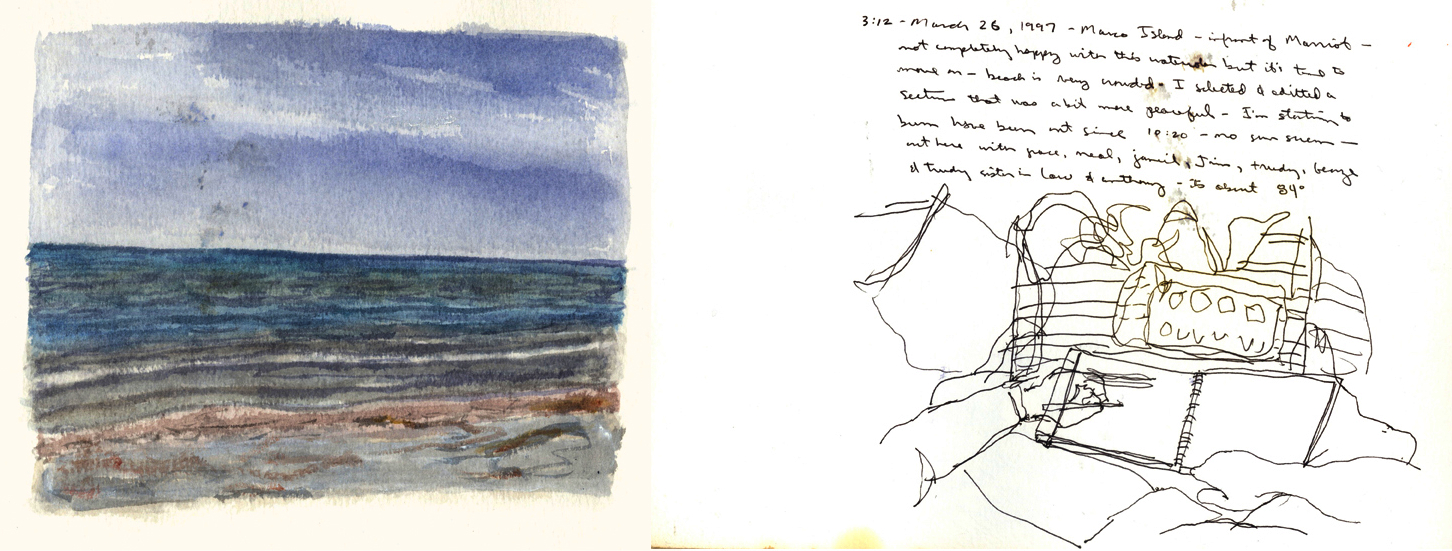 3:12 - March 26, 1997 - Marco Island - infront of Marriot -
not completely happy with this watercolor but it's time to
move on - beach is very crowded. I selected & editted a
section that was a bit more peaceful - I'm starting to
burn have been out since 10:20 - no sun screen -
out here with grace, neal, Jim, trudy, george
& trudy sister in law & anthony - its about 84°